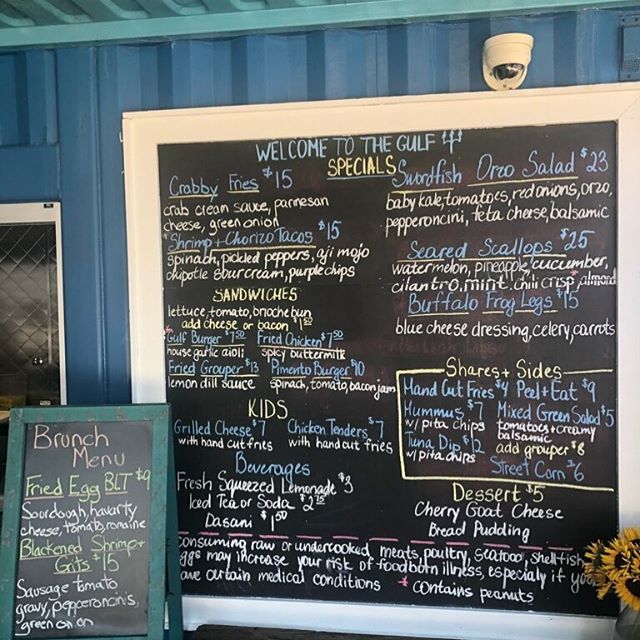 WELCOME TO THE GULF
SPECIALS
Crabby Fries $15
crab cream sauce, parmesan
cheese, green onion
Shrimp + Chorizo Tacos $15
spinach, pickled peppers, aji mojo
chipotle sour cream, purple chips
SANDWICHES
lettuce, tomato, brioche bun
add cheese or bacon $1.50
*Gulf Burger $7.50
house garlic aioli
Fried Chicken $7.50
spicy buttermilk
Fried Grouper $13
lemon dill sauce
Pimento Burger $10
spinach, tomato, bacon jam
KIDS
Grilled Cheese $7
with hand cut fries
Chicken Tenders $7
with hand cut fries
Beverages
Fresh Squeezed Lemonade $3
Iced Tea or Soda $2.75
Dasani $1.50
Swordfish Orzo Salad $23
baby kale, tomatoes, red onions, orzo,
pepperoncini, feta cheese, balsamic
Seared Scallops $25
watermelon, pineapple, cucumber,
cilantro, mint, chili crisp, *almond
Buffalo Frog Legs $15
blue cheese dressing, celery, carrots
Shares + Sides
Hand Cut Fries $4 Peel + Eat $9
Hummus $7
w/ pita chips
Tuna Dip $12
w/ pita chips
Mixed Green Salad $5
tomatoes + creamy
balsamic
add grouper $8
Street Corn $6
Dessert $5
Cherry Goat Cheese
Bread Pudding
consuming raw or undercooked meats, poultry, seafood, shellfish,
eggs may increase your risk of foodborn illness, especialy if you
have certain medical conditions * contains peanuts
Brunch
Menu
Fried Egg BLT $9
Sourdough, havarty
cheese, tomato, romaine
Blackened Shrimp +
Grits $15
Sausage tomato
gravy, pepperoncinis,
green onion